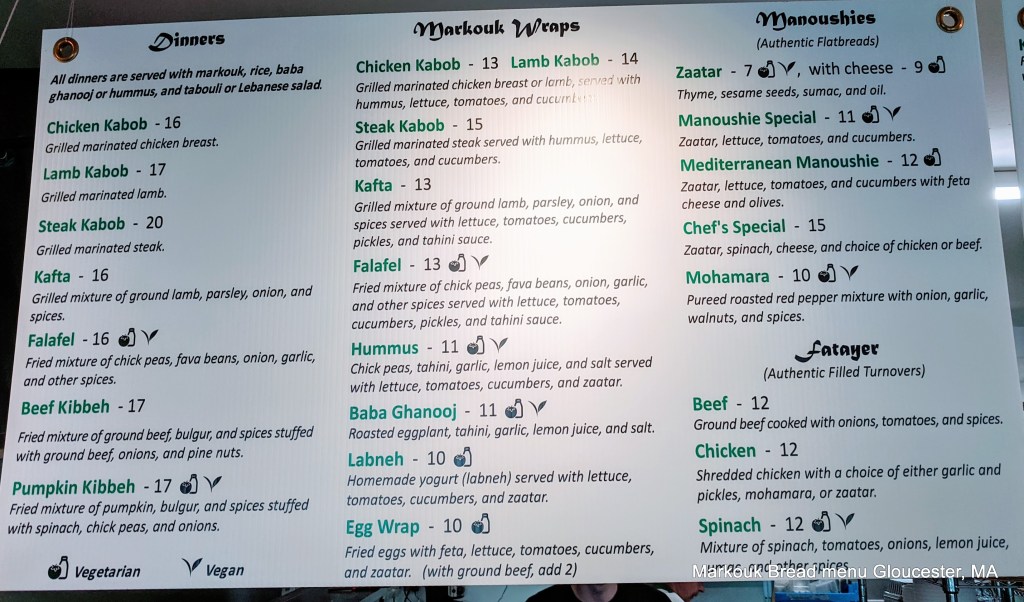 Dinners
All dinners are served with markouk, rice, baba
ghanooj or hummus, and tabouli or Lebanese salad.
Chicken Kabob - 16
Grilled marinated chicken breast.
Lamb Kabob - 17
Grilled marinated lamb.
Steak Kabob - 20
Grilled marinated steak.
Kafta - 16
Grilled mixture of ground lamb, parsley, onion, and
spices.
Falafel - 16
Fried mixture of chick peas, fava beans, onion, garlic,
and other spices.
Beef Kibbeh - 17
Fried mixture of ground beef, bulgur, and spices stuffed
with ground beef, onions, and pine nuts.
Pumpkin Kibbeh - 17
Fried mixture of pumpkin, bulgur, and spices stuffed
with spinach, chick peas, and onions.
Vegetarian Vegan
Markouk Wraps
Chicken Kabob - 13 Lamb Kabob - 14
Grilled marinated chicken breast or lamb, served with
hummus, lettuce, tomatoes, and cucumber
Steak Kabob - 15
Grilled marinated steak served with hummus, lettuce,
tomatoes, and cucumbers.
Kafta - 13
Grilled mixture of ground lamb, parsley, onion, and
spices served with lettuce, tomatoes, cucumbers,
pickles, and tahini sauce.
Falafel - 13
Fried mixture of chick peas, fava beans, onion, garlic,
and other spices served with lettuce, tomatoes,
cucumbers, pickles, and tahini sauce.
Hummus - 11
Chick peas, tahini, garlic, lemon juice, and salt served
with lettuce, tomatoes, cucumbers, and zaatar.
Baba Ghanooj - 11
Roasted eggplant, tahini, garlic, lemon juice, and salt.
Labneh - 10
Homemade yogurt (labneh) served with lettuce,
tomatoes, cucumbers, and zaatar.
Egg Wrap - 10
Fried eggs with feta, lettuce, tomatoes, cucumbers,
and zaatar. (with ground beef, add 2)
Manoushies
(Authentic Flatbreads)
Zaatar - 7 , with cheese - 9
Thyme, sesame seeds, sumac, and oil.
Manoushie Special - 11
Zaatar, lettuce, tomatoes, and cucumbers.
Mediterranean Manoushie - 12
Zaatar, lettuce, tomatoes, and cucumbers with feta
cheese and olives.
Chef's Special - 15
Zaatar, spinach, cheese, and choice of chicken or beef.
Mohamara - 10
Pureed roasted red pepper mixture with onion, garlic,
walnuts, and spices.
Fatayer
(Authentic Filled Turnovers)
Beef - 12
Ground beef cooked with onions, tomatoes, and spices.
Chicken - 12
Shredded chicken with a choice of either garlic and
pickles, mohamara, or zaatar.
Spinach - 12
Mixture of spinach, tomatoes, onions, lemon juice,
and other spices
Markouk Bread menu Gloucester, MA